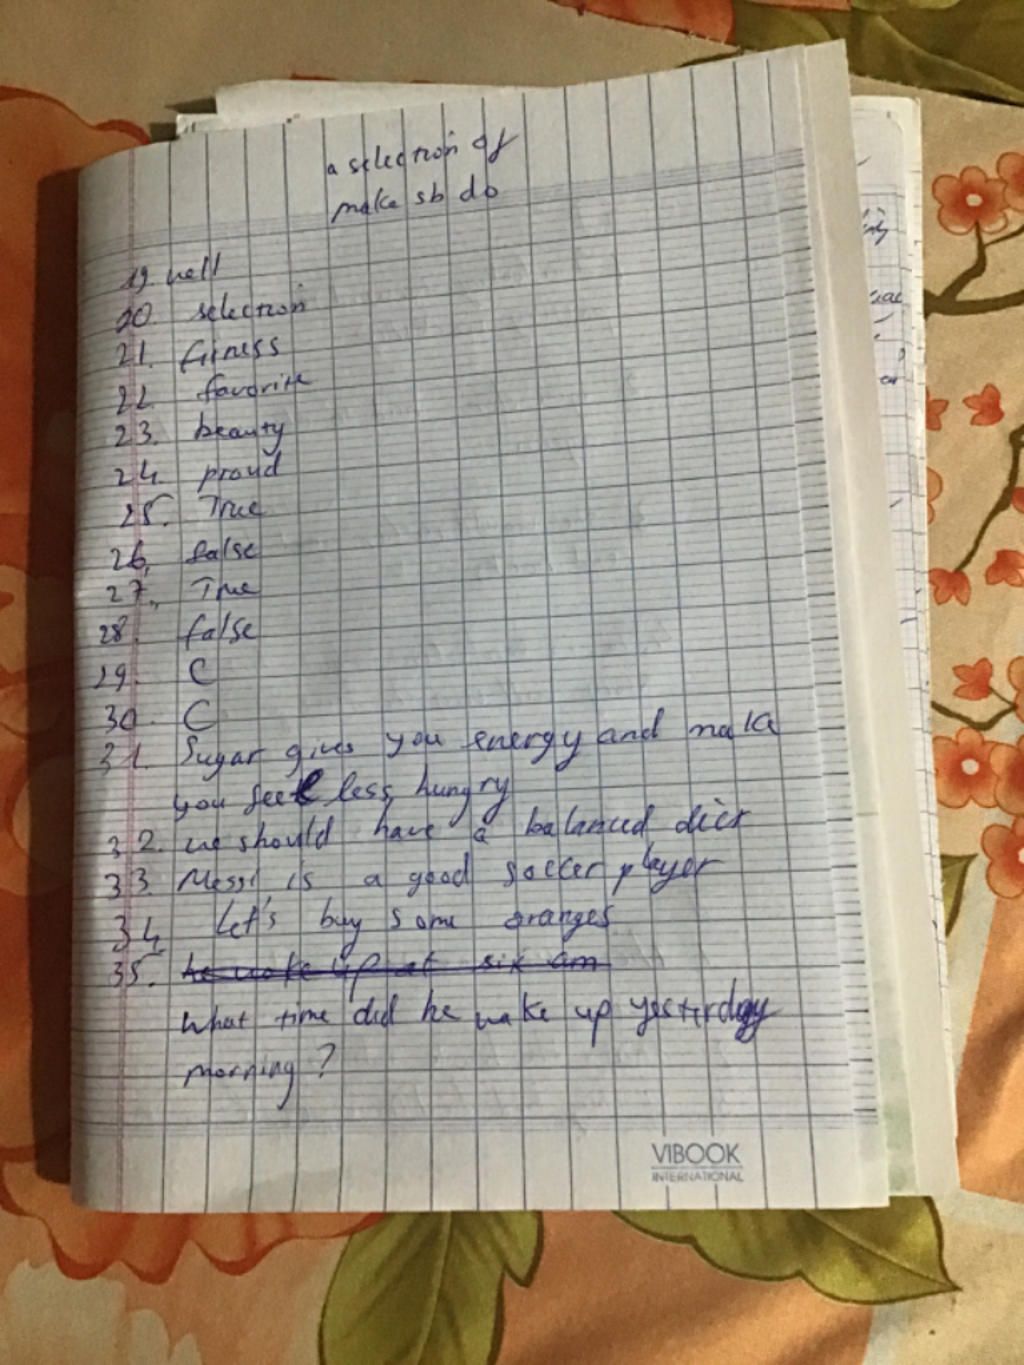 a selection of
make sb do
19. well
20. selection
21. fitness
22. favorite
23. beauty
24. proud
25. True
26. false
27. True
28. false
29. C
30. C
31. Sugar gives you energy and make
you feel less hungry
32. we should have a balanced diet
33. Messi is a good soccer player
34. Let's buy some oranges
35. he woke up at six am
What time did he wake up yesterday
morning?
VIBOOK
INTERNATIONAL